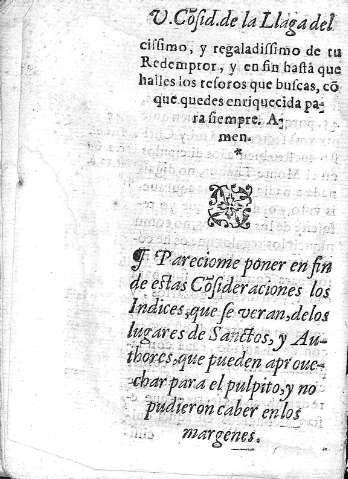 V. Cõsid. de la Llaga del
cissimo, y regaladissimo de tu
Redemptor, y en fin hasta que
halles los tesoros que buscas, cõ
que quedes enriquecida pa-
ra siempre. A-
men.
*
¶ Pareciome poner en fin
de estas Cõsideraciones los
Indices, que se veran, de los
lugares de Sanctos, y Au-
thores, que pueden aproue-
char para el pulpito, y no
pudieron caber en los
margenes.